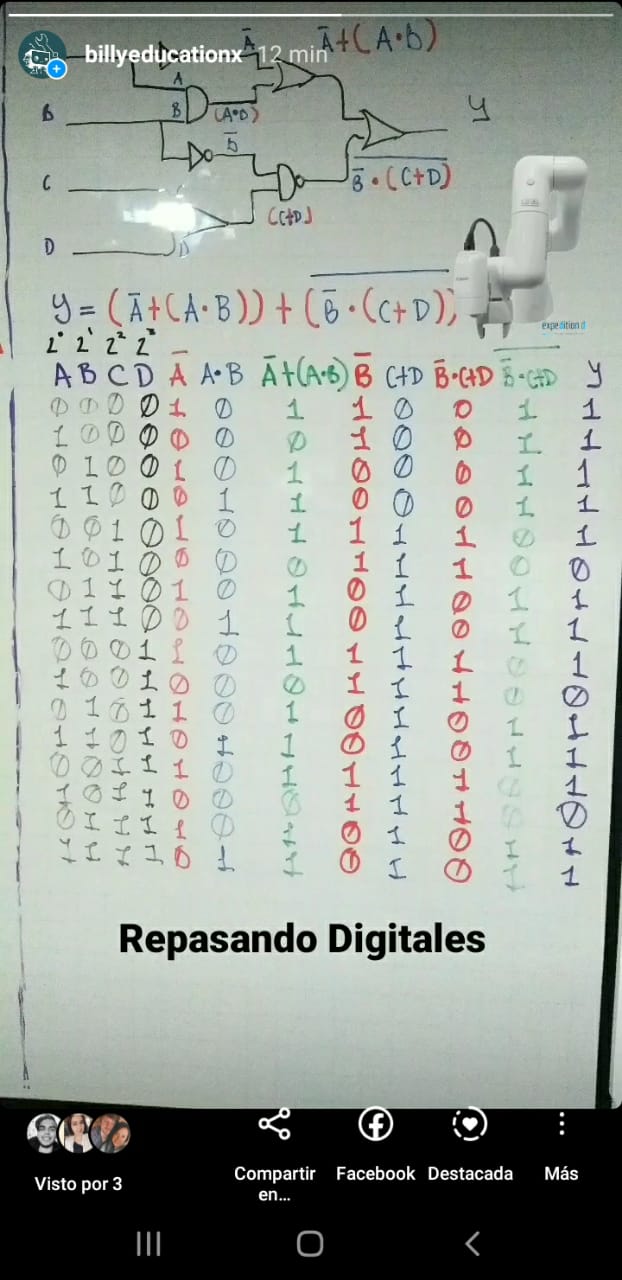 billyeducationx 12 min
Ā
Ā+(A•B)
A
B
B
(A•B)
y
B̄
C
$\overline{\bar{B}•(C+D)}$
(C+D)
D
D
expedition d
$y = (\bar{A}+(A•B)) + (\overline{\bar{B}•(C+D)})$
2⁰ 2¹ 2² 2³
A B C D Ā A•B Ā+(A•B) B̄ C+D B̄•C+D $\overline{\bar{B}•C+D}$ y
0 0 0 0 1 0 1 1 0 0 1 1
1 0 0 0 0 0 0 1 0 0 1 1
0 1 0 0 1 0 1 0 0 0 1 1
1 1 0 0 0 1 1 0 0 0 1 1
0 0 1 0 1 0 1 1 1 1 0 1
1 0 1 0 0 0 0 1 1 1 0 0
0 1 1 0 1 0 1 0 1 0 1 1
1 1 1 0 0 1 1 0 1 0 1 1
0 0 0 1 1 0 1 1 1 1 0 1
1 0 0 1 0 0 0 1 1 1 0 0
0 1 0 1 1 0 1 0 1 0 1 1
1 1 0 1 0 1 1 0 1 0 1 1
0 0 1 1 1 0 1 1 1 1 0 1
1 0 1 1 0 0 0 1 1 1 0 0
0 1 1 1 1 0 1 0 1 0 1 1
1 1 1 1 0 1 1 0 1 0 1 1
Repasando Digitales
Visto por 3
Compartir en...
Facebook
Destacada
Más